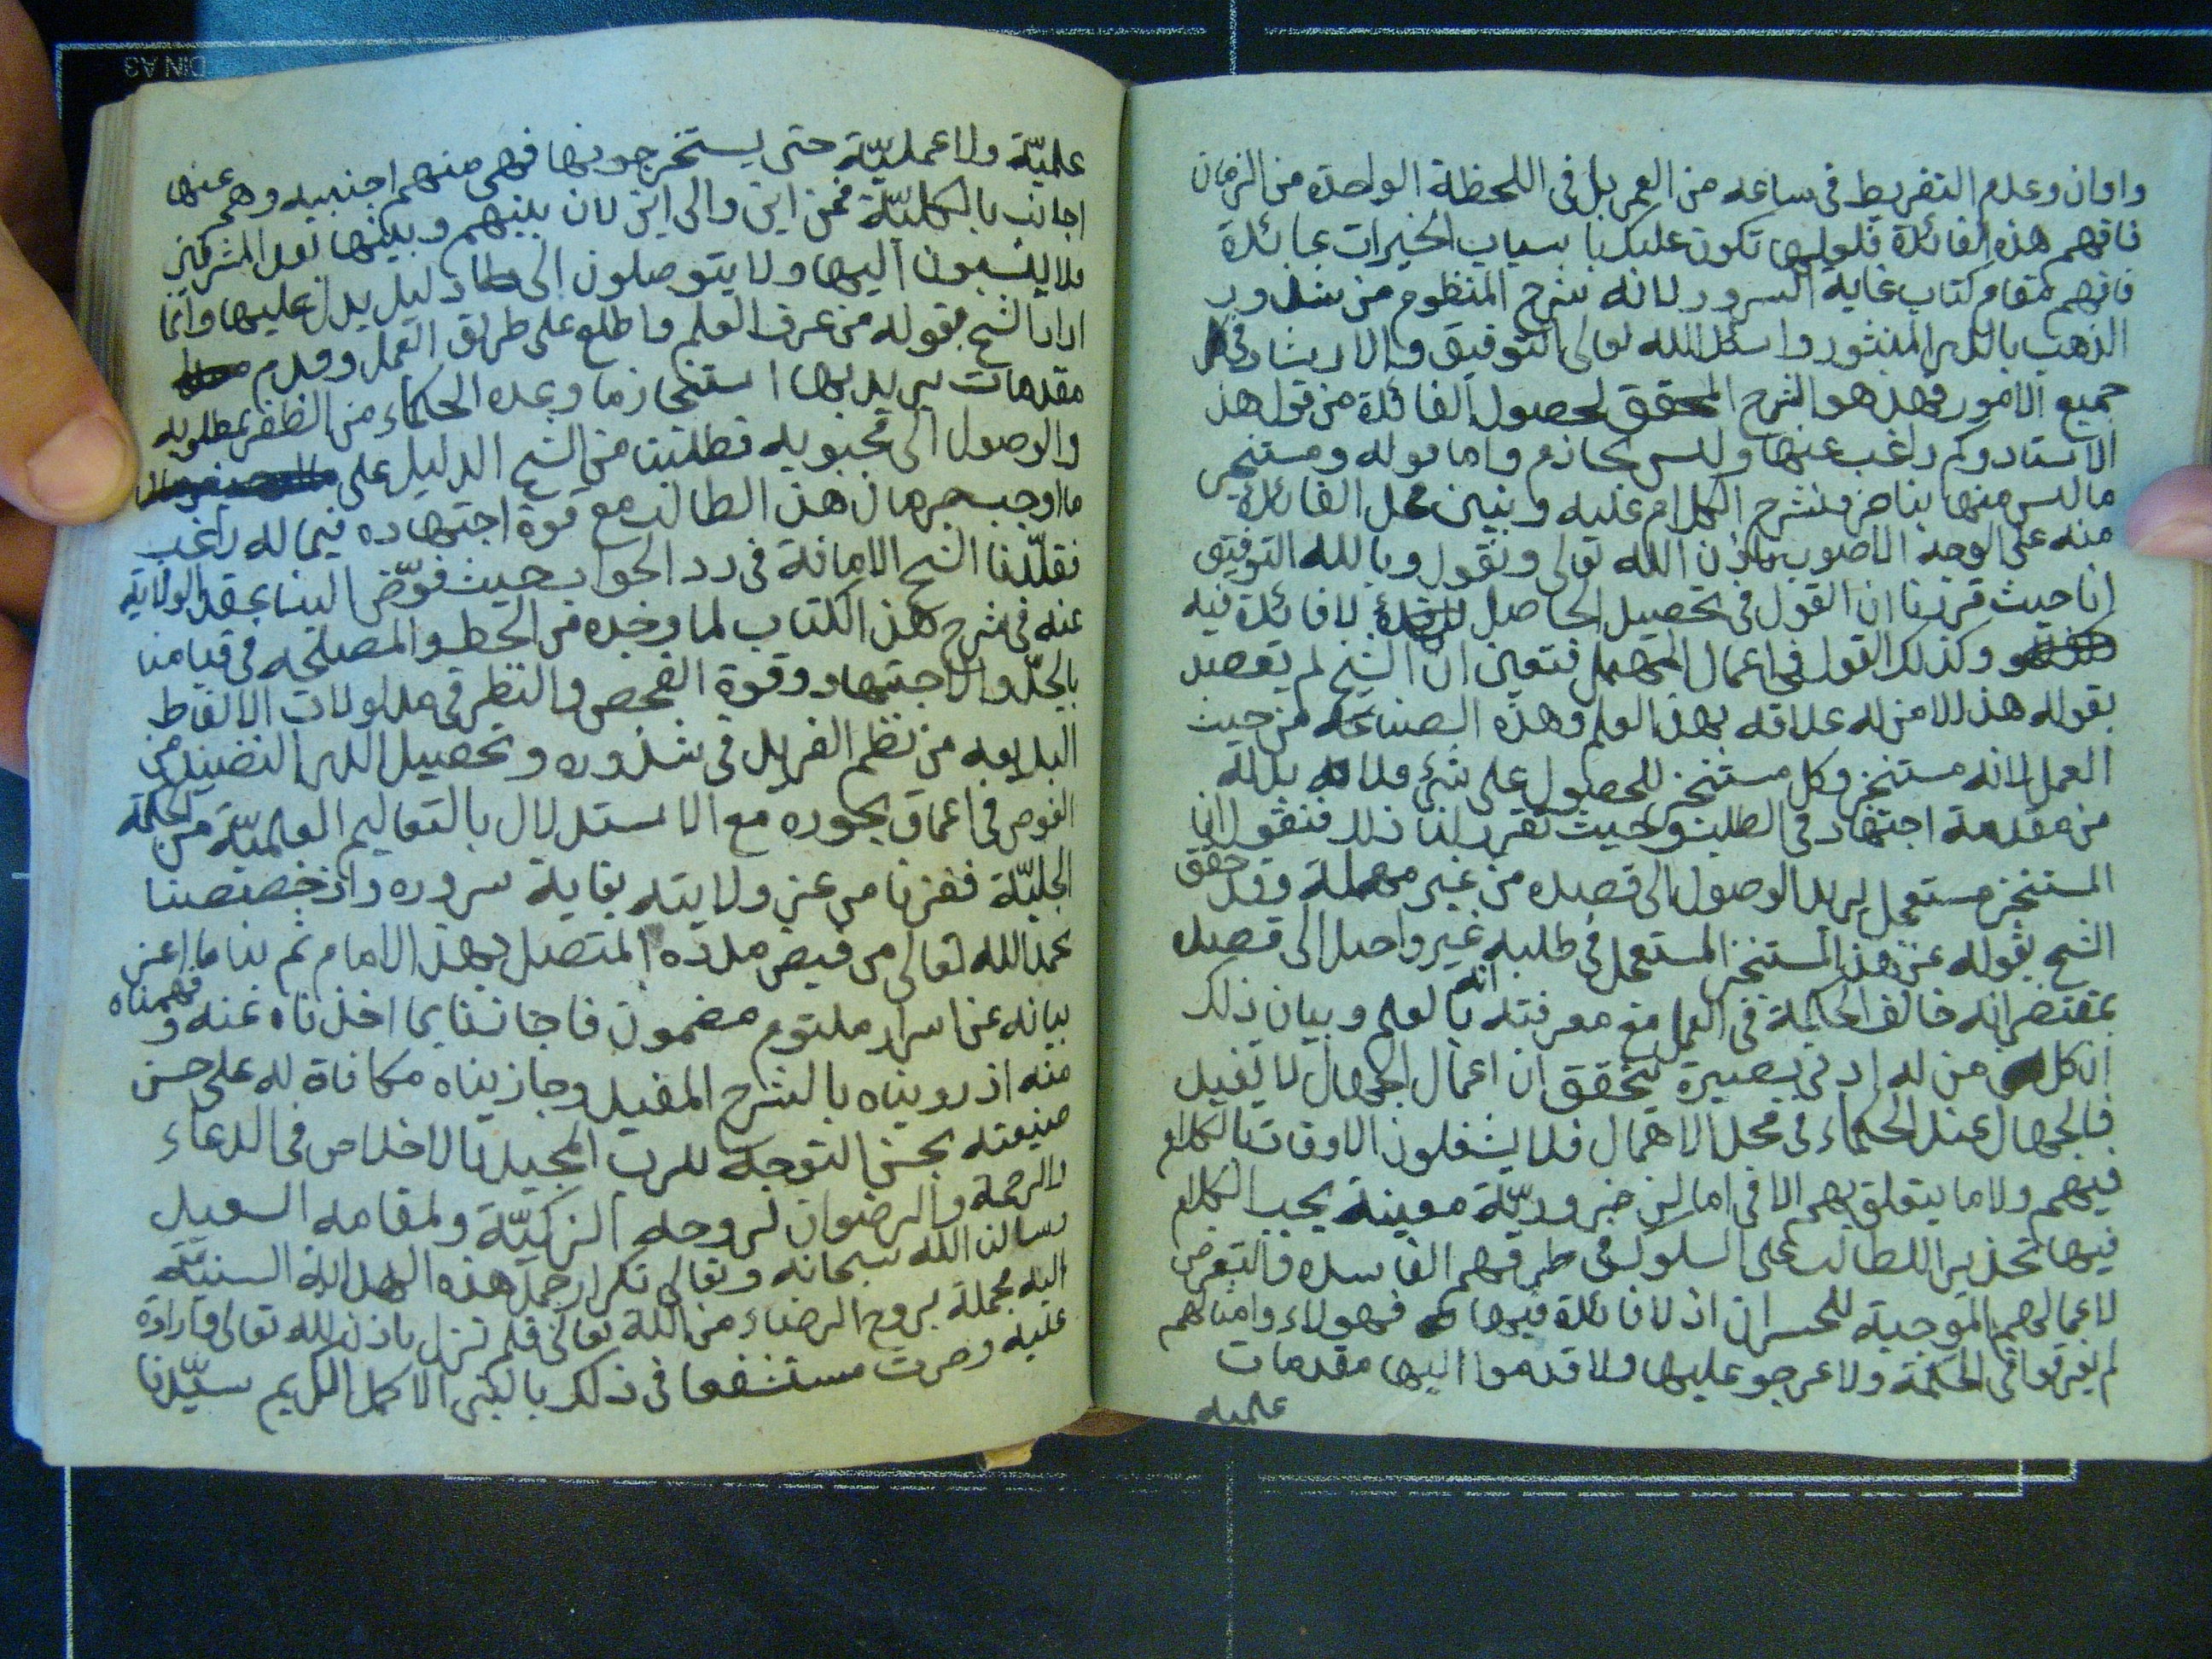 واوان وعدم التفريط في ساعه من العمر بل في اللحظة الواحدة من الزمان
فافهم هذه الفائدة فلعلها تكون عليك باسباب الخيرات عائدة
فافهم مقام كتاب غاية السرور لانه شرح المنظوم من شذور
الذهب بالدر المنثور واسئل الله تعالى التوفيق والارشاد في
جميع الامور فهذ هو الشرح المحقق لحصول الفائدة من قول هذ
الاستاد وكم راغب عنها وليس بحازم واما قوله ومستنجز
ما ليس منها بناجز فنشرح الكلام عليه ونبين محل الفائدة
منه على الوجه الاصوب باذن الله تعالى ونقول وبالله التوفيق
انا حيث قررنا ان القول في تحصيل الحاصل لا فائدة فيه
وكذلك القول في اعمال المهمل فتعين ان الشيخ لم يقصد
بقوله هذ الا من له علاقه بهذ العلم وهذه الصناعه من حيث
العمل لانه مستنجز وكل مستنجز للحصول على شئ فلا بد له
من مقدمة اجتهاد في الطلب وحيث تقرر لنا ذلك فنقول ان
المستنجز مستعجل يريد الوصول الى قصده من غير مهملة وقد حقق
الشيخ بقوله عن هذ المستنجز المستعجل في طلبه غير واصل الى قصده
بمقتضى انه خالف الحكمة في العمل مع معرفته بالعلم وبيان ذلك
ان كل من له ادنى بصيرة تحقق ان اعمال الجهال لا تفيد
فالجهال عند الحكماء في محل الاهمال فلا يشغلون الاوقات بالكلام
فيهم ولا ما يتعلق بهم الا في اماكن ضروريّة معينة يجب الكلام
فيها تحذيرا للطالب على السلوك في طرقهم الفاسده والتعرض
لاعمالهم الموجبة للخسران اذ لا فائدة فيها فهولاء وامثالهم
لم يغرقوا في الحكمة ولا عرجو عليها ولا قدموا اليها مقدمات
علميه
علميّة ولا عمليّة حتى يستخرجونها فهي منهم اجنبيه وهم عنها
اجانب بالكليّة فمن اين والى اين لان بينهم وبينها بعد المشرقين
فلا ينسبون اليها ولا يتوصلون الى دليل يدل عليها وانما
اراد الشيخ بقوله من عرف العلم واطلع على طريق العمل وقدم
مقدمات يريد بها استنجاز ما وعده الحكماء من الظفر بمطلوبه
والوصول الى محبوبه فطلبنا من الشيخ الدليل على
ما اوجب حرمان هذ الطالب مع قوة اجتهاده فيما له راغب
فقلّدنا الشيخ الامانة في رد الجواب حيث فوّض الينا بعقد الولاية
عنه في شرح هذ الكتاب لما وجده من الحظ والمصلحه في قيامنا
بالجدّ والاجتهاد وقوة الفحص والنظر في مدلولات الالفاظ
البديعه من نظم الفريد في شذوره وتحصيل الدر النضيد من
الغوص في اعماق بحوره مع الاستدلال بالتعاليم العلميّة من الحكمة
الجليّة ففزنا من عز ولايته بغاية سروره واذ خصصنا
بحمد الله تعالى من فيض مدده المتصل بهذ الامام ثم بنا ما اعز
بيانه عن اسرار ملتوم مضمون فاجاننا بما اخذناه عنه وفهمناه
منه اذ رويناه بالشرح المفيد وجازيناه مكافاة له على حسن
صنيعته بحسن التوجه للرب المجيد بالاخلاص في الدعاء
بالرحمة والرضوان لروحه الزكيّة ولمقامه السعيد
وسالنا الله سبحانه وتعالى تكرار حمل هذه الهداية السنيّة
اليه محملة بروح الرضاء من الله تعالى فلم تزل باذن الله تعالى واراده
عليه وصرت مستشفعا في ذلك بالنبي الاكمل الكريم سيّدنا